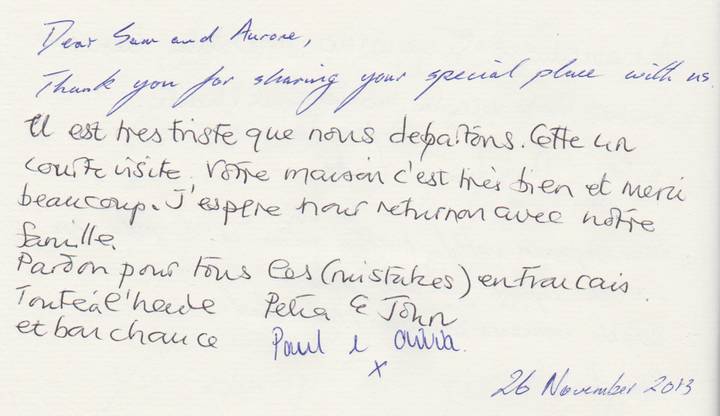 Dear Sam and Aurore,
Thank you for sharing your special place with us.
Il est tres triste que nous departons. Cette un
courte visite. Votre maison c'est très bien et merci
beaucoup. J'espere nous returnon avec notre
famille.
Pardon pour tous les (mistakes) en Francais.
Toute à l'heure Petra & John
et bon chance Paul &
x
26 November 2013